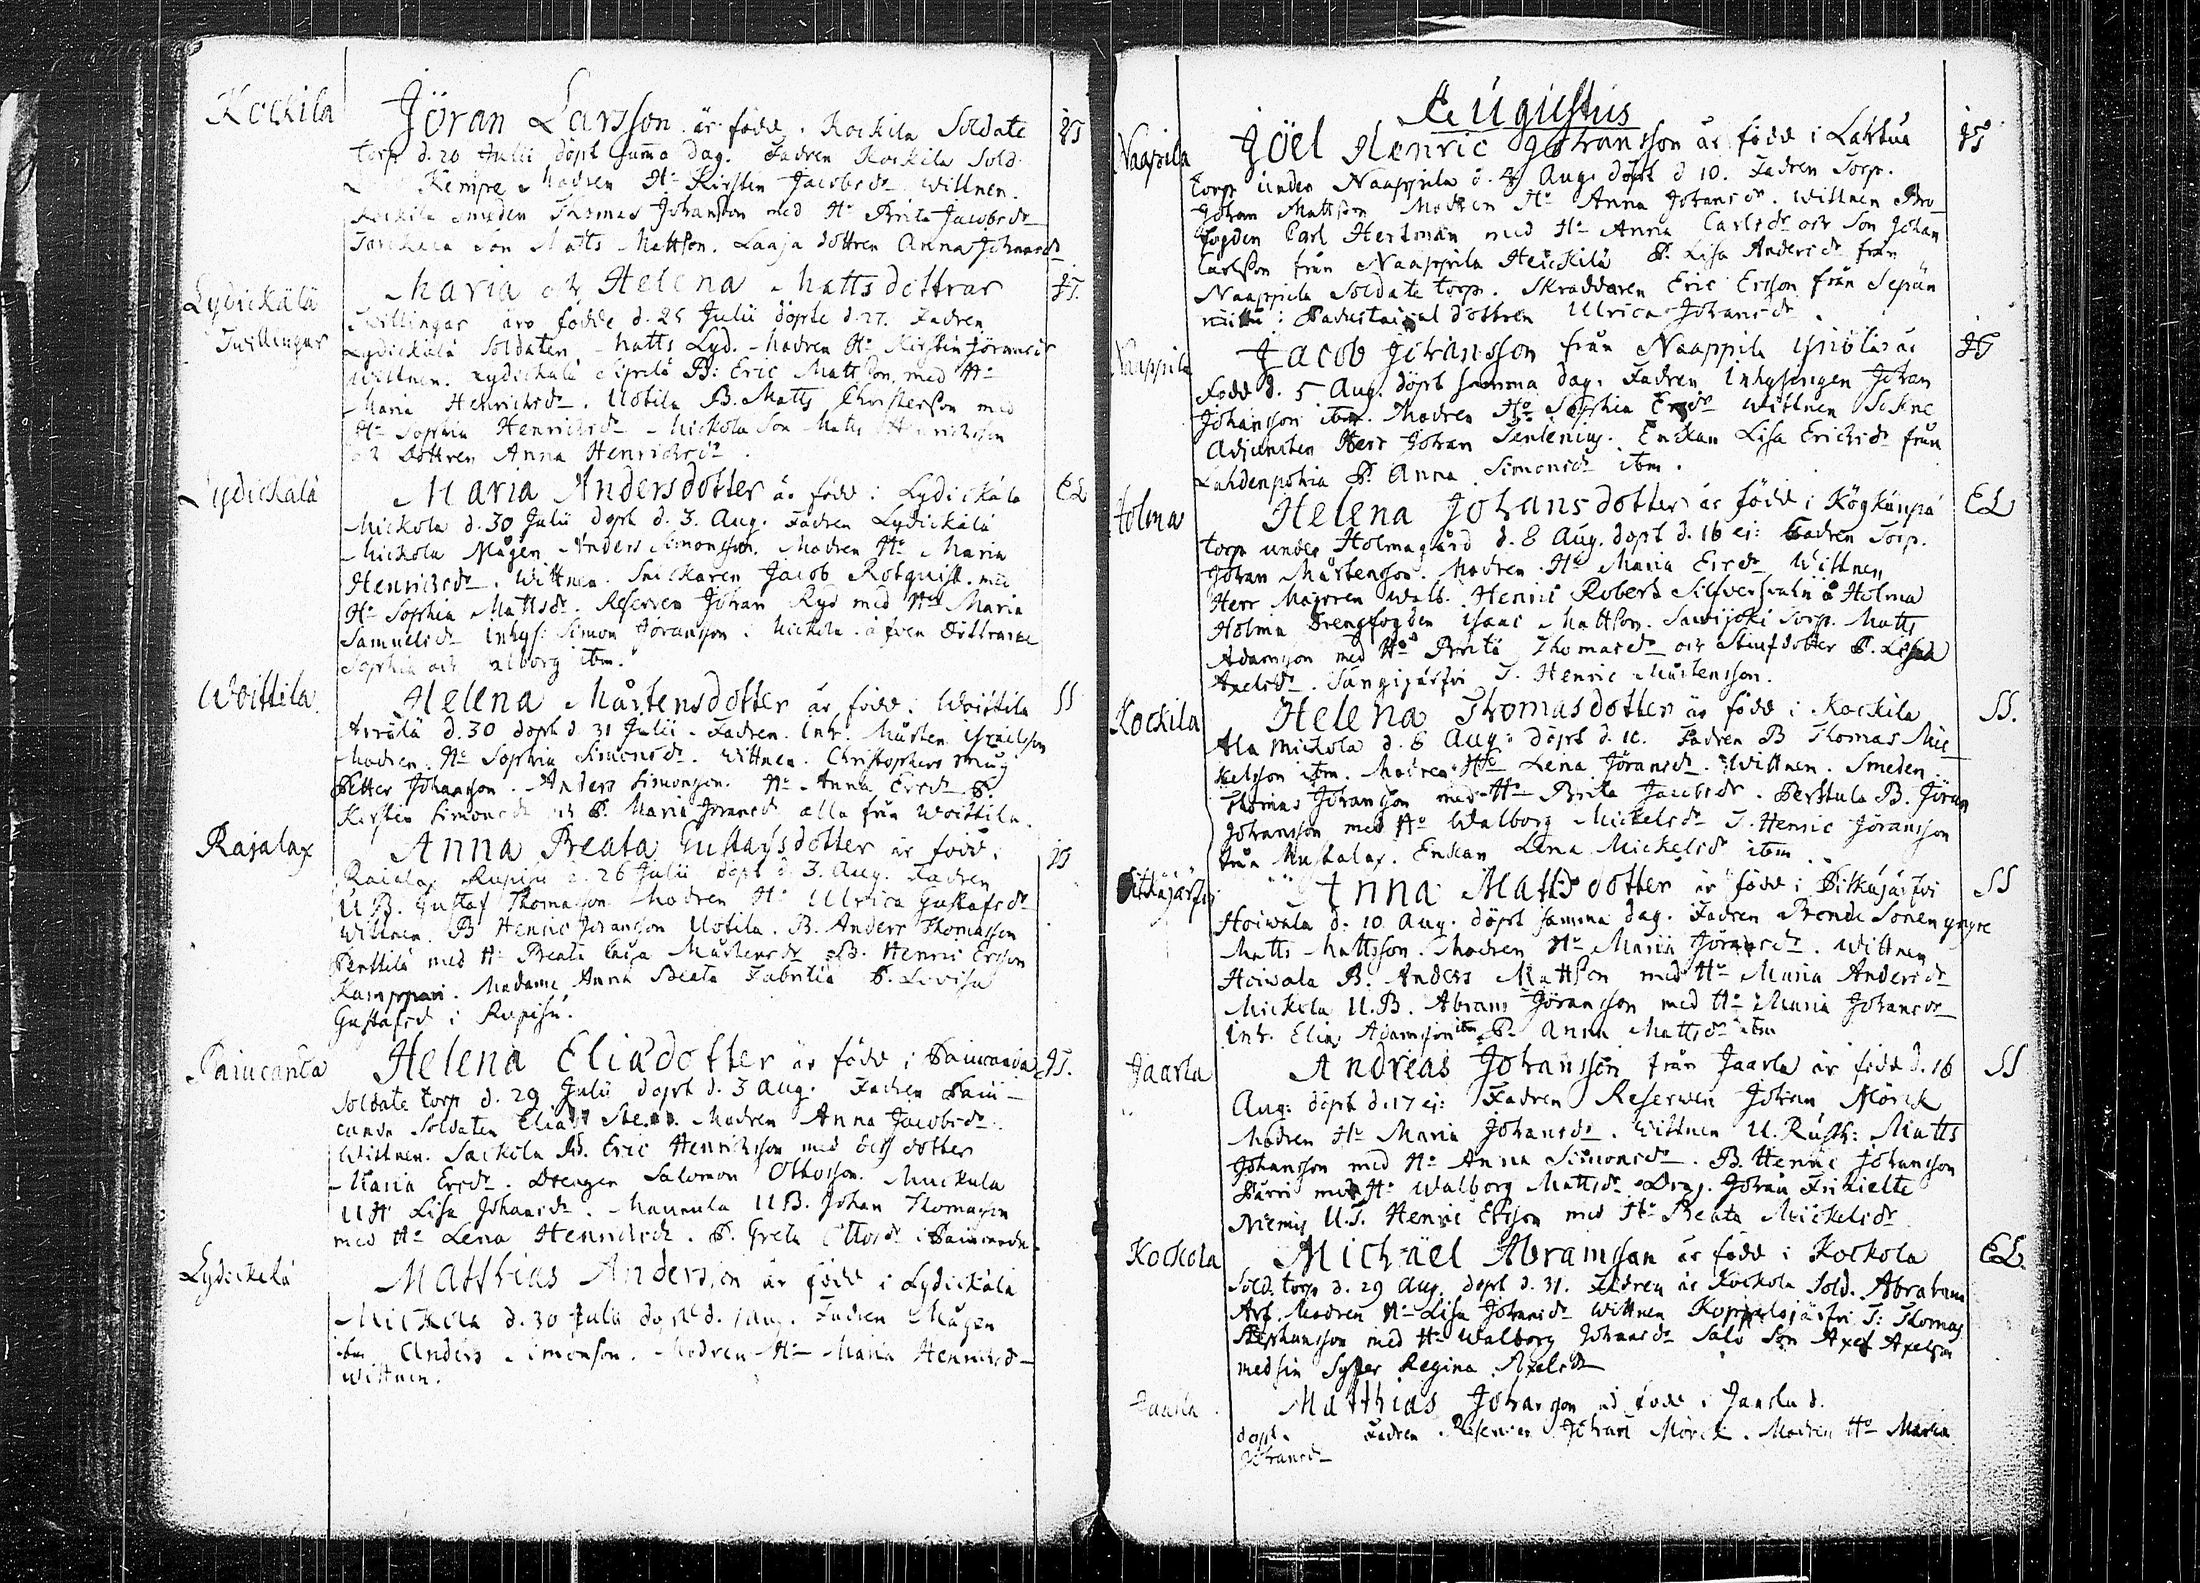 Kockila Jöran Larsson är född i Kockila Soldate JT
torp d. 20 Julii döpt samma dag. Fadren Kockila Sold.
Kempe Modren Ho Kirstin Jacobsdr Wittnen.
Kockila Smeden Thomas Johansson med Ho Brita Jacobsdr
Son Matts Mattson. Laaja dottren Anna Johansdr
Lydickälä Maria och Helena Mattsdöttrar JT.
Twillingar Twillingar äro födde d. 25 Julii döpte d. 27. Fadren
Lydickälä Soldaten Matts Lyd. Modren Ho Kirstin Jöransdr
Wittnen. Lydickälä Siprilä B: Eric Mattson med Ho
Maria Henrichsdr. Uotila B. Matts Christerson med
Ho Sophia Henrichsdr Mickola Son Matts Henrichsson
och Dottren Anna Henrichsdr.
Lydickälä Maria Andersdotter är född i Lydickälä EL
Mickola d. 30 Julii döpt d. 3. Aug. Fadren Lydickälä
Mickola Mågen Anders Simonsson. Modren Ho Maria
Henrichsdr. Wittnen. Snickaren Jacob Rotquist. med
Ho Sophia Mattsdr. Reserven Johan Ryd med Ho Maria
Samuelsdr Inhys: Simon Jöransson i Mickola äfven Döttrarne
Sophia och Walborg itm.
Woittila Helena Mårtensdotter är född i Woittila SS
d. 30 döpt d 31 Julii. Fadren. Inh. Mårten
Modren. Ho Sophia Simonsdr. Wittnen. Christophers Måg
Petter Johansson. Anders Simonson. Ho Anna Ersdr P.
Kirstin Simonsdr och P. Maria Jöransdr alla från Woittila.
Rajalax Anna Beata Gustafsdotter är född i JT
Raialax Rupisu d. 26 Julii döpt d. 3. Aug. Fadren
U B. Gustaf Thomason Modren Ho Ulrica Gustafsdr
Wittnen. B Henric Johanson Uotila. B. Anders Thomasson
Penttilä med Ho Beata Caisa Mårtensdr B. Henric Ersson
Kamppari. Madame Anna Beata P. Lovisa
Gustafsd i Rupisu.
Paiucanda Helena Eliædotter är född i Paiucanda JT.
Soldate torp d. 29 Julii döpt d. 3 Aug. Fadren Paiu-
canda Soldaten Elias Modren Anna Jacobsdr.
Wittnen. Saickola B. Eric Henrichsson med dess dotter
Maria Ersdr. Drengen Salomon Ottosson. Muckula
UH Lisa Johansdr. Maunula UB. Johan Thomason
med Ho Lena Henrichsdr. P. Greta Ottosdr i Paiucanda.
Lydickälä Matthias Anderson är född i Lydickälä
Mickola d. 30 Julii döpt d. 1 Aug. Fadren Mågen
itm Anders Simonson. Modren Ho Maria Henrichsdr
Wittnen.
Augustus
Naapila Joël Henric Johansson är född i Lahtua JT
torp under Naappila d. 4 Aug. döpt d 10. Fadren Torp.
Johan Mattson Modren Ho Anna Johansdr. Wittnen Bro-
fogden Carl Hertman med Ho Anna Carlsdr och Son Johan
Carlsson från Naappila Heickilä P. Lisa Andersdr från
Naappila Soldate torp. Skräddaren Eric Ersson från Sepän
mättu: dottren Ulrica Johansdr.
Naappila Jacob Johansson från Naappila är JT
född d. 5 Aug. döpt samma dag. Fadren Inhysingen Johan
Johansson itm. Modren Ho Sophia Ersdr Wittnen
Adjuncten Herr Johan Tenlenius. Enckan Lisa Erichsdr från
Lahdenpohia P. Anna Simonsdr itm.
Holma Helena Johansdotter är född i EL
torp under Holmagård d. 8 Aug. döpt d. 16 ej: Fadren Torp.
Johan Mårtensson. Modren Ho Maria Ersdr Wittnen
Herr Majoren Walb. Henric Robert å Holma
Holma Drengfogden Isaac Mattson. Sawijoki Torp. Matts
Adamson med Ho Brita Thomasdr och Stufdotter P. Lisa
Axelsdr. Sangijärfvi T. Henric Mårtensson.
Kockila Helena Thomasdotter är född i Kockila SS.
Ala Mickola d. 8 Aug: döpt d. 10. Fadren B Thomas Mic-
kelsson itm. Modren Ho Lena Jöransdr. Wittnen. Smeden
Thomas Johansson med Ho Brita Jacobsdr. Perttula B. Jöran
Johansson med Ho Walborg Mickelsdr T. Henric Jöransson
från Mustalax. Enckan Lena Mickelsdr itm.
Pitkäjärfvi Anna Mattsdotter är född i Pitkäjärfvi SS
Hoiwala d. 10 Aug. döpt samma dag. Fadren Bonde Sonen yngre
Matts Mattsson. Modren Ho Maria Jöransdr. Wittnen
Hoiwala B. Anders Mattson med Ho Maria Andersdr
Mickola U.B. Abram Jöransson med Ho Maria Johansdr
Inh. Elias Adamsson itm P. Anna Mattsdr itm
Jaarla Andreas Johansson från Jaarla är född d. 16 SS
Aug: döpt d. 17 ej: Fadren Reserven Johan Mörck
Modren Ho Maria Johansdr. Wittnen U. Rusth: Matts
Johansson med Ho Anna Simonsdr. B. Henric Johansson
Pärri med Ho Walborg Mattsdr Drag. Johan
Niemis U.T. Henric Ersson med Ho Beata Mickelsdr
Kockola Michaël Abramsson är född i Kockola EL.
Sold. torp d. 29 Aug. döpt d. 31. Fadren är Kockola Sold. Abraham
Arf. Modren Ho Lisa Johansdr Wittnen Koppelojärfvi T: Thomas
Stephansson med Ho Walborg Johansdr Salo Son Axel Axelson
med sin Syster Regina Axelsdr
Jaarla Matthias Johansson är född i Jaarla d.
döpt. Fadren Reserven Johan Mörck. Modren Ho Maria
Johansdr